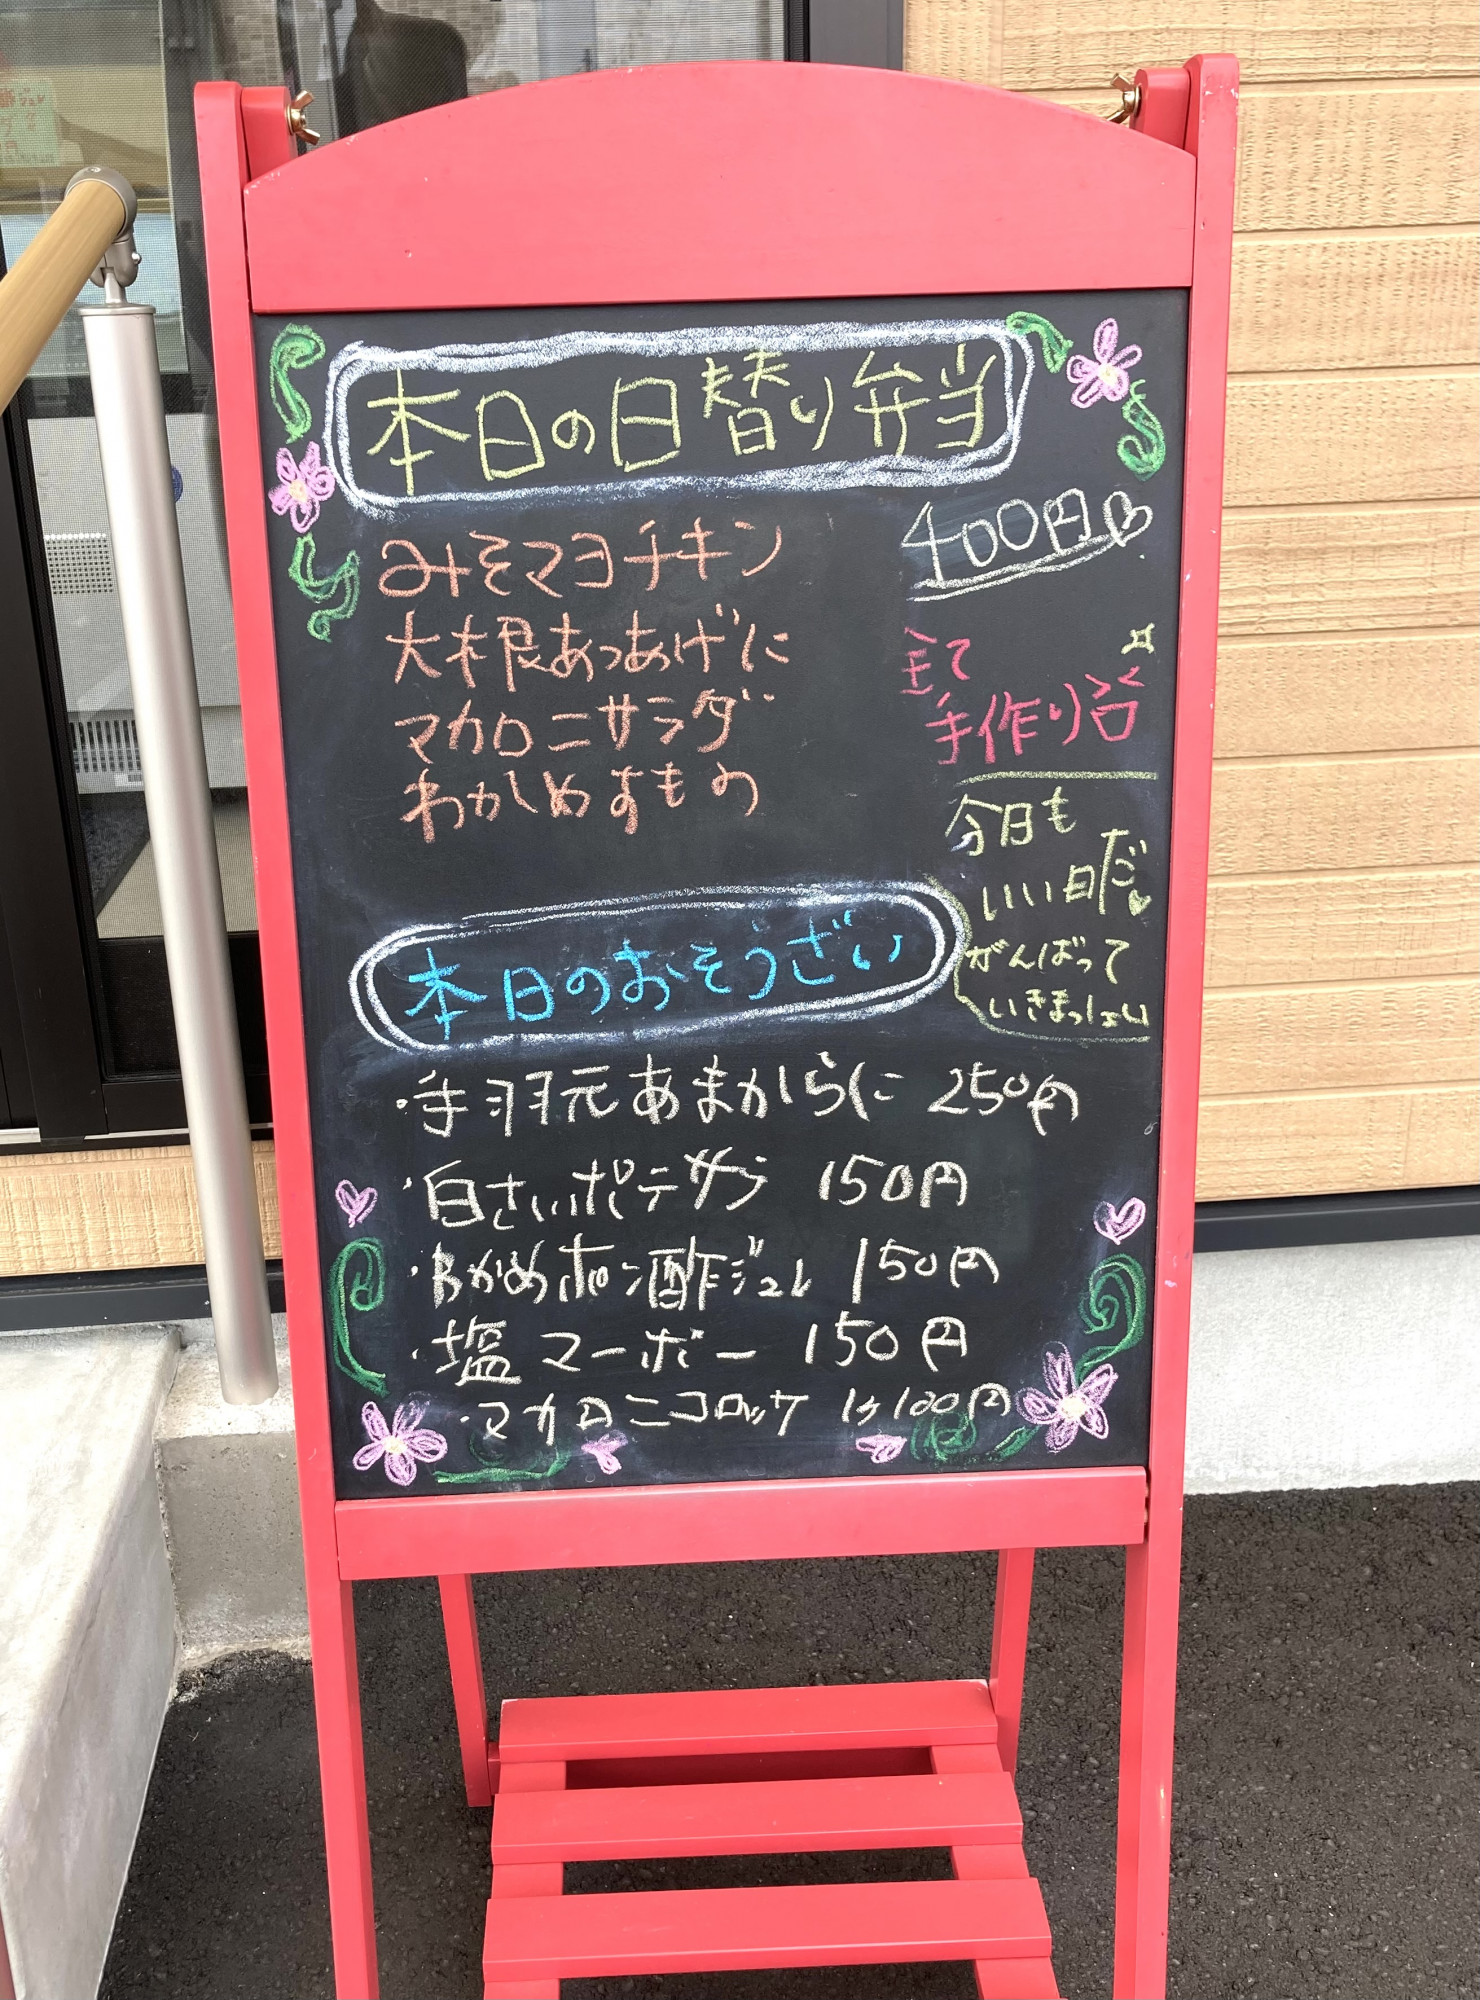 本日の日替り弁当
400円
みそマヨチキン
大根あつあげに
マカロニサラダ
わかしめすもの
全て
手作り
今日も
いい日だ
がんばって
いきまっしょい
本日のおそうざい
・手羽元あまからに 250円
・白さいポテサラ 150円
・わかめポン酢ジュレ 150円
・塩マーボー 150円
・マカロニコロッケ 1ケ100円